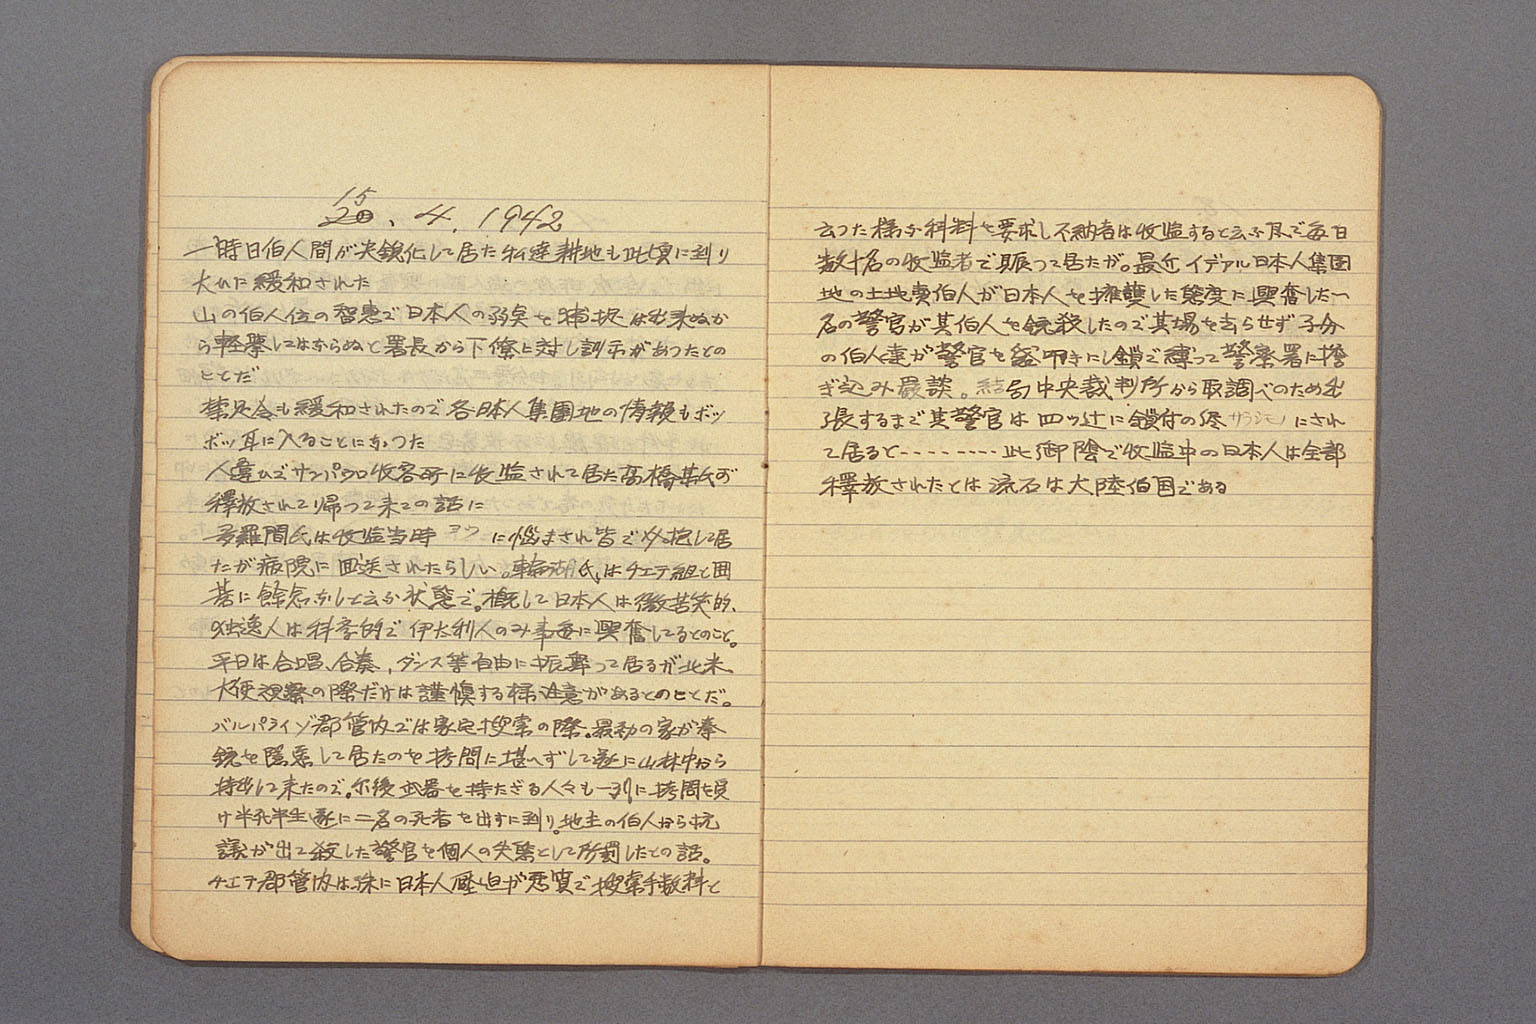 15
20. 4. 1942
一時日伯人間が尖鋭化して居た私達耕地も此頃に到り
大いに緩和された
山の伯人位の智恵で日本人の弱点を捕捉は出来ぬか
ら軽挙してはならぬと署長から下僚に対し訓示があつたとの
ことだ
禁足令も緩和されたので各日本人集團地の情報もボツ
ボツ耳に入ることになつた
人違ひでサンパウロ收容所に收監されて居た高橋某氏が
釋放されて帰つて来ての話に
多羅間氏は收監当時 に悩まされ皆で介抱して居
たが病院に回送されたらしい。輪湖氏はチエテ組と囲
碁に餘念なしと云ふ状態で。概して日本人は微苦笑的、
独逸人は科学的で伊太利人のみ事毎に興奮してるとのこと。
平日は合唱、合奏、ダンス等自由に振舞つて居るが北米
大使視察の際だけは謹慎する様注意があるとのことだ。
バルパライゾ郡管内では家宅捜索の際。最初の家が拳
銃を隠悪して居たのを拷問に堪へずして遂に山林中から
持出して来たので。尓後武器を持たざる人々も一列に拷問を受
け半死半生遂に二名の死者を出すに到り。地主の伯人から抗
議が出て殺した警官を個人の失態として所罰したとの話。
チエテ郡管内は殊に日本人圧迫が悪質で捜索手数料と
云つた様な科料を要求し不納者は收監すると云ふ具で毎日
数十名の收監者で賑つて居たが。最近イデアル日本人集團
地の土地売伯人が日本人を擁護した態度に興奮した一
名の警官が其伯人を銃殺したので其場を去らせず子分
の伯人達が警官を袋叩きにし鎖で縛つて警察署に擔
ぎ込み厳談。結局中央裁判所から取調べのため出
張するまで其警官は四ツ辻に鎖付の侭サラシモノにされ
て居ると‥‥‥‥此御陰で收監中の日本人は全部
釋放されたとは流石は大陸伯国である